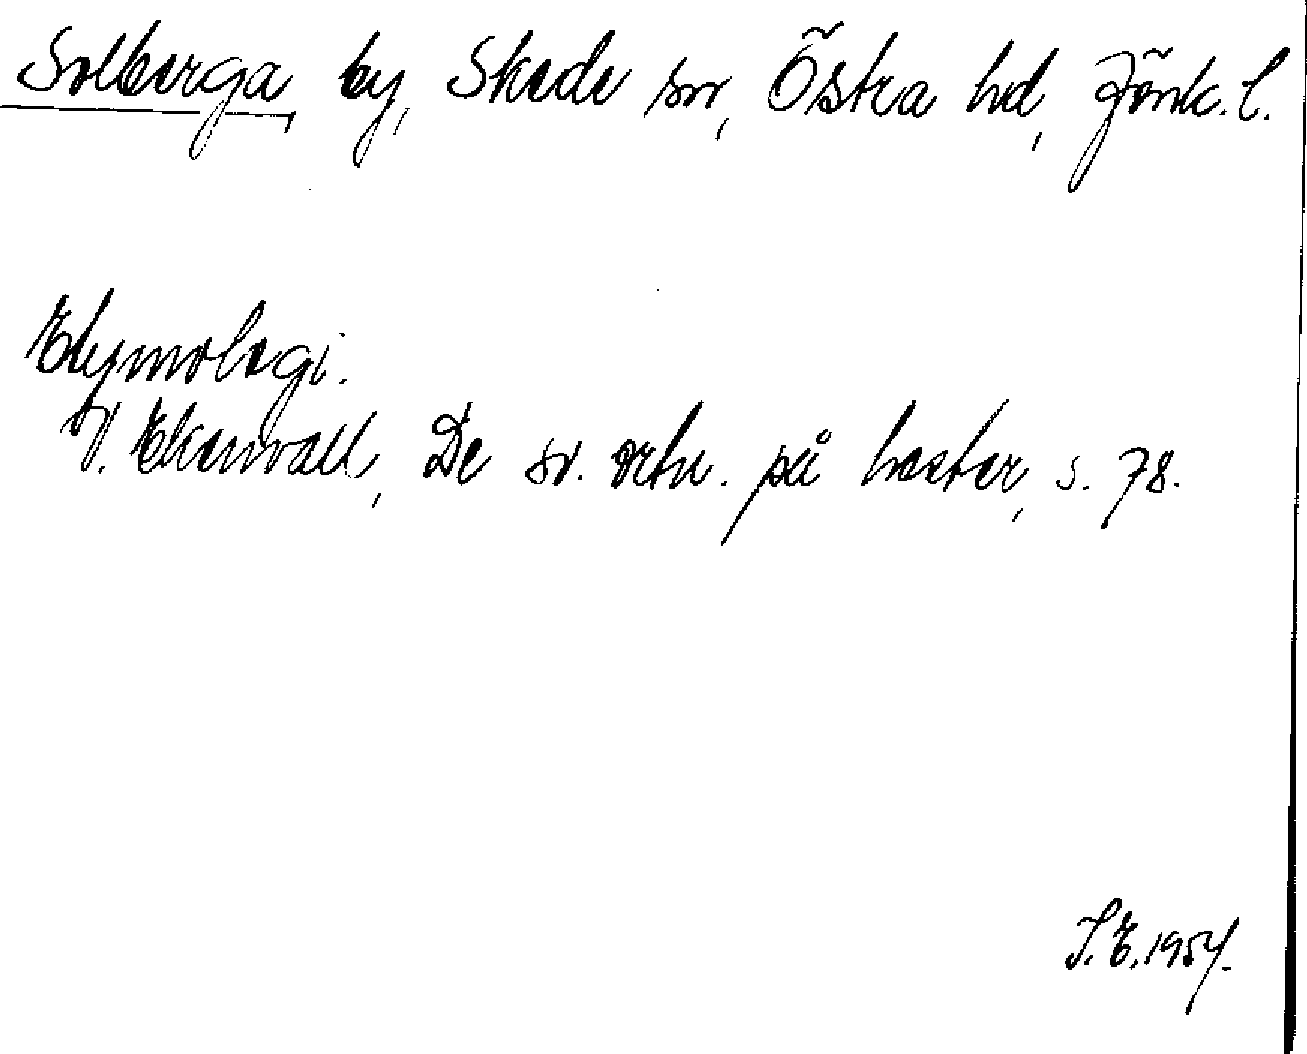 Solberga, by, Skede sn, Östra hd, Jönk. l.
Etymologi.
V. Ekenvall, De sv. ortn. på hester, s. 78.
S.E. 1954.